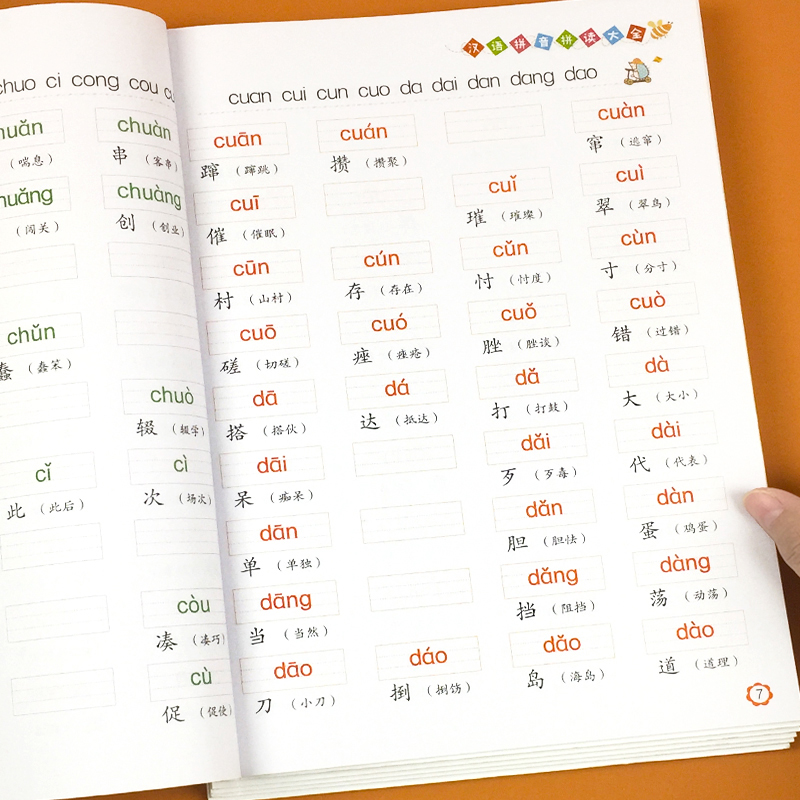 chuo ci cong cou
huǎn chuàn
（喘息） 串（客串）
huǎng chuàng
（闯关） 创（创业）
chǔn
蠢（蠢笨）
chuò
辍（辍学）
cǐ cì
此（此后） 次（场次）
còu
凑（凑巧）
cù
促（促使）
汉语拼音拼读大全
cuan cui cun cuo da dai dan dang dao
cuān cuán cuàn
蹿（蹿跳） 攒（攒聚） 窜（逃窜）
cuī cuǐ cuì
催（催眠） 璀（璀璨） 翠（翠鸟）
cūn cún cǔn cùn
村（山村） 存（存在） 忖（忖度） 寸（分寸）
cuō cuó cuǒ cuò
磋（切磋） 痤（痤疮） 脞（脞谈） 错（过错）
dā dá dǎ dà
搭（搭伙） 达（抵达） 打（打鼓） 大（大小）
dāi dǎi dài
呆（痴呆） 歹（歹毒） 代（代表）
dān dǎn dàn
单（单独） 胆（胆怯） 蛋（鸡蛋）
dāng dǎng dàng
当（当然） 挡（阻挡） 荡（动荡）
dāo dáo dǎo dào
刀（小刀） 捯（捯饬） 岛（海岛） 道（道理）
7